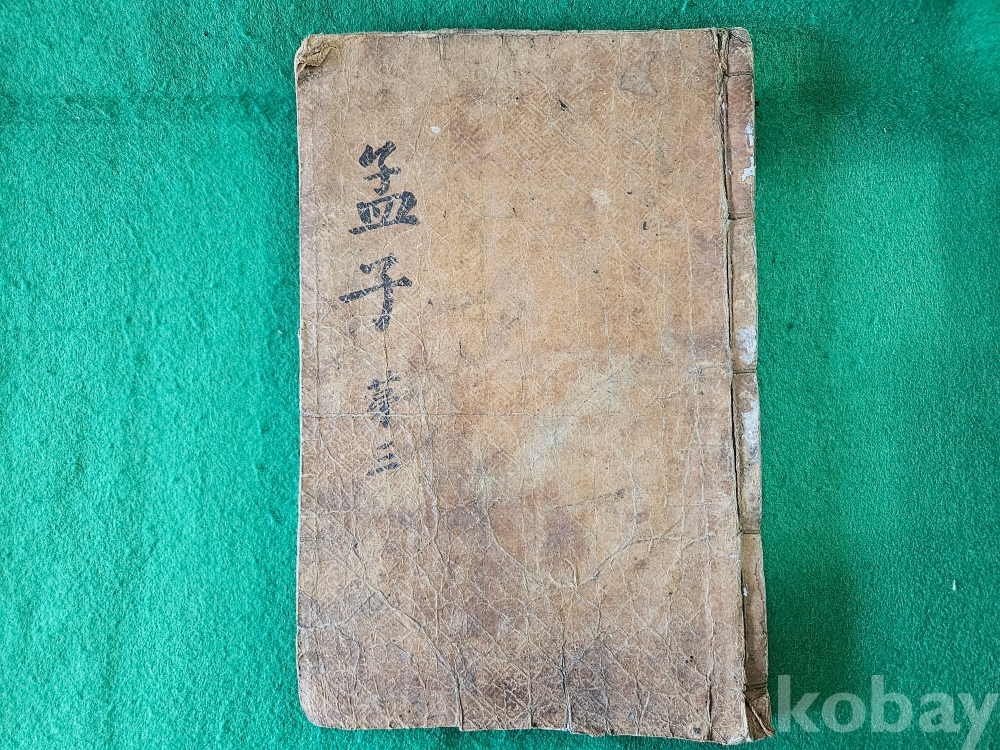 孟子 第三
kobay